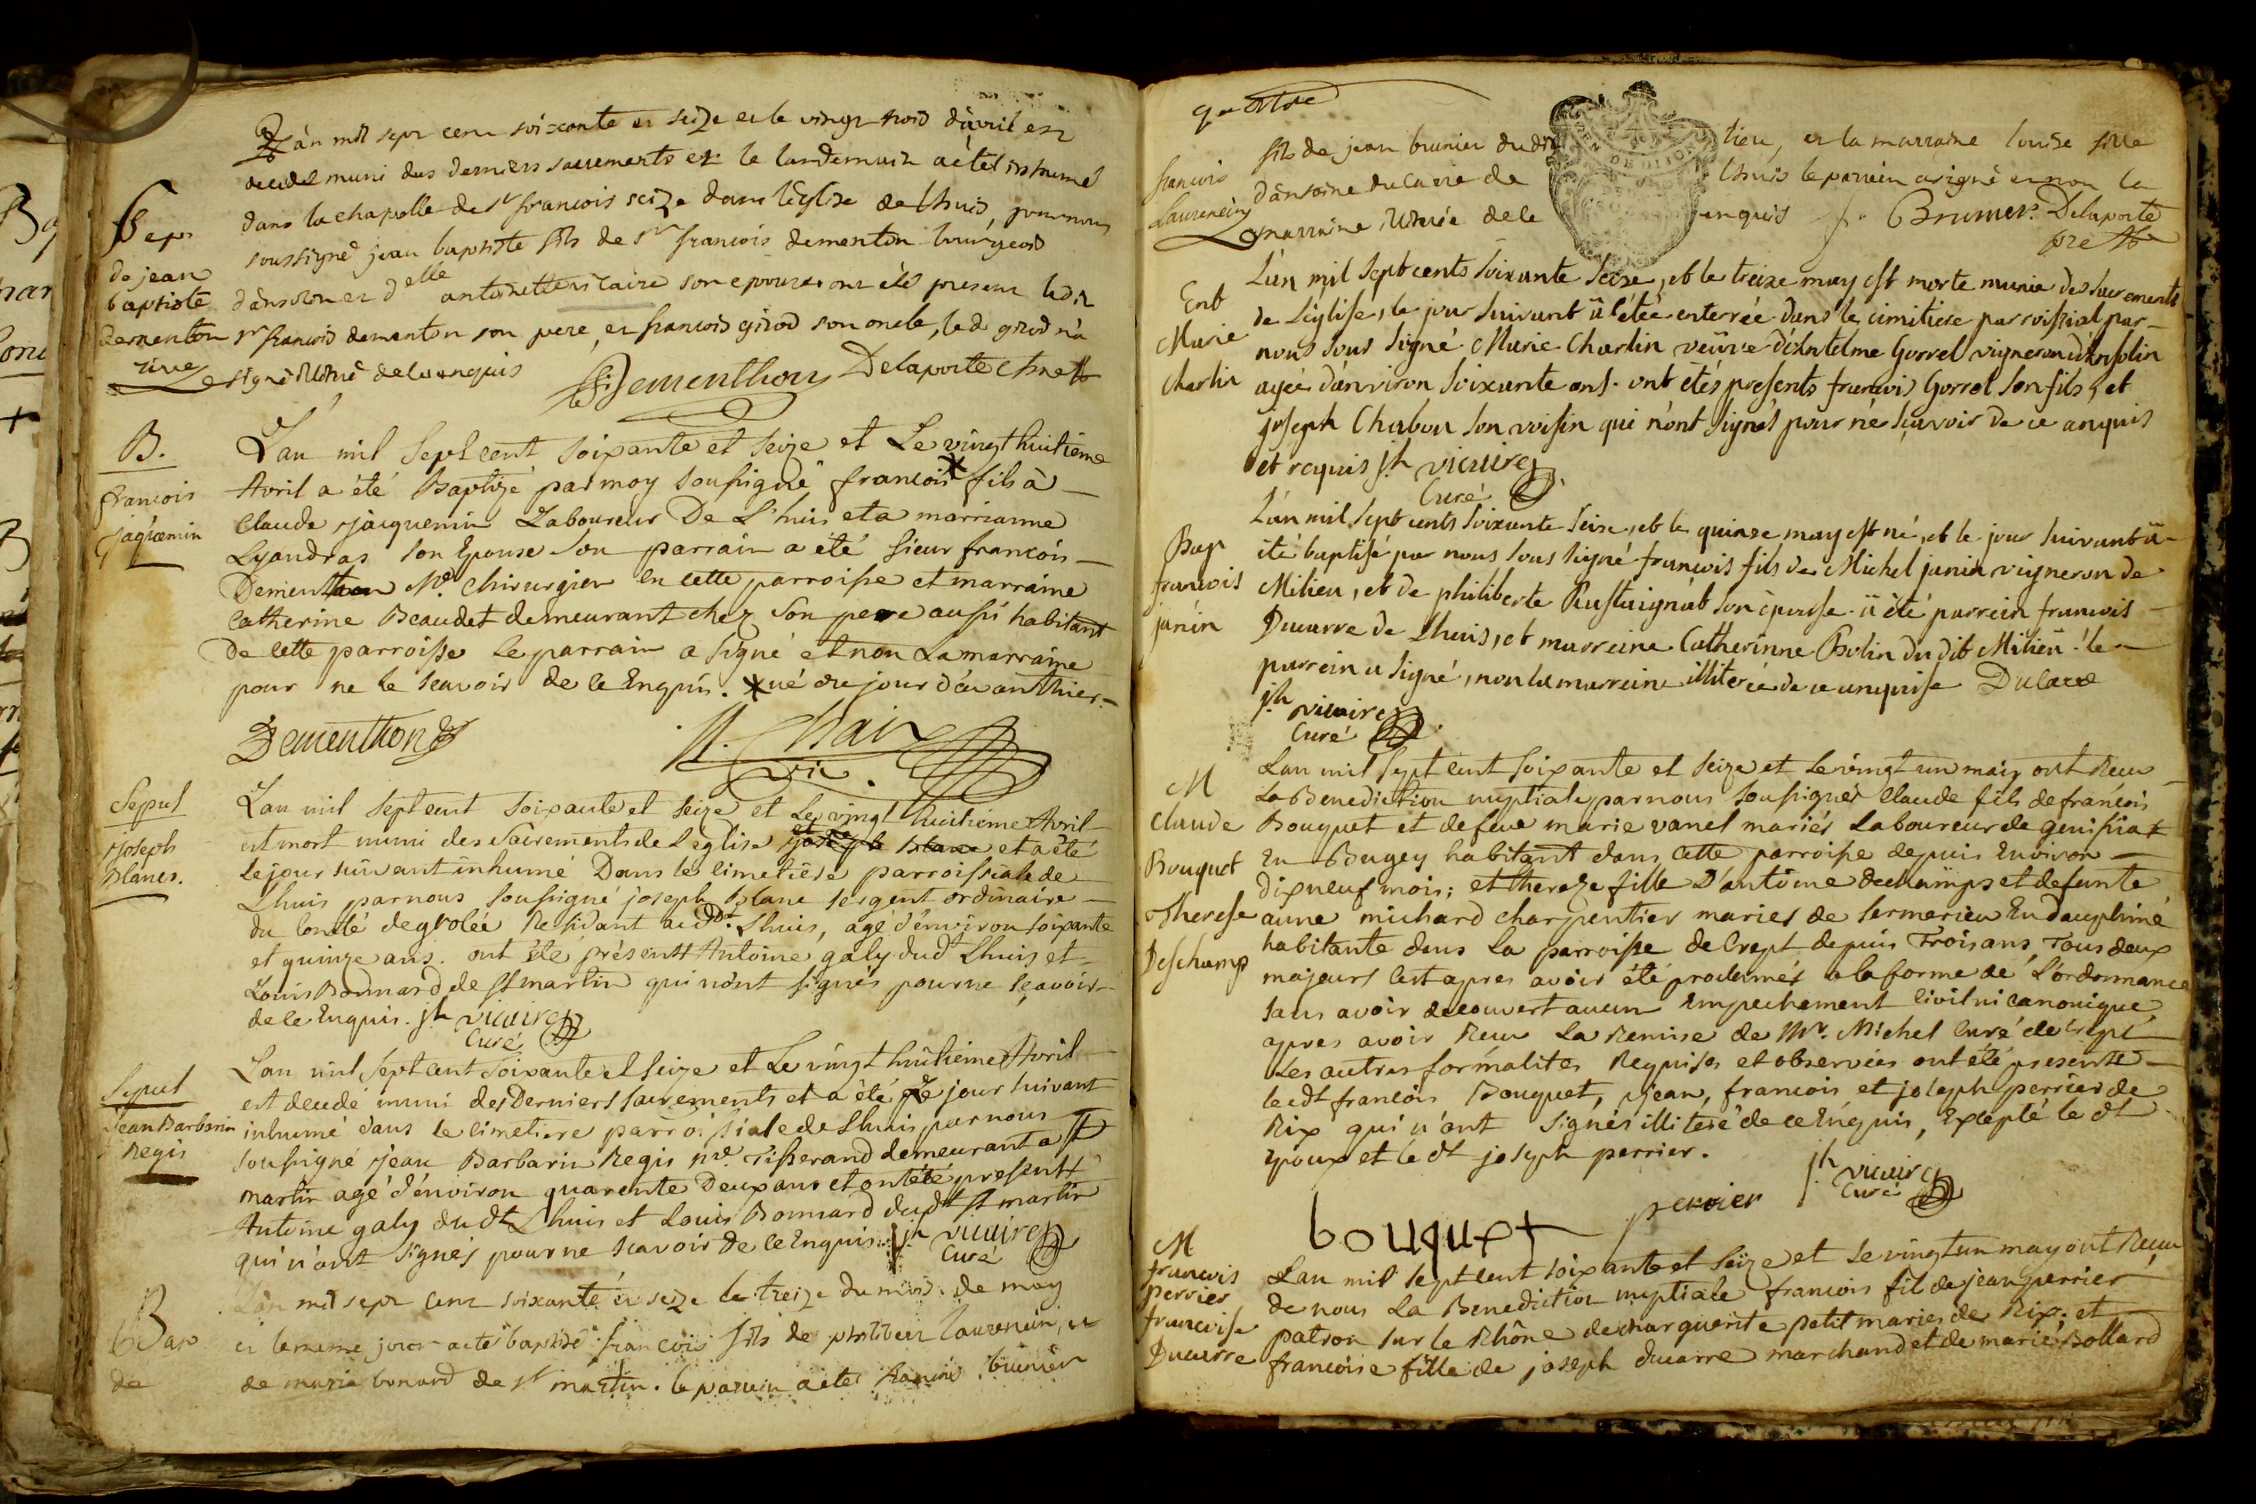 L'àn mil sept cent soixante et seize et le vingt trois d'àvril est
decedé muni des derniers sacrements et le landemain a été inhumé
Sep.
dans la chapelle de st francois seize dans l'église de lhuis, par nous
soussigné jean baptiste fils de sr francois dementon bourgeois
de jean
baptiste
d'ànsolon et delle antoinette son epouse ont été present ledit
dementon
sr francois dementon son pere, et francois girod son oncle, led girod n'a
signé de ce enquis
Dementhon Delaporte
B.
L'an mil Sept cent Soixante et Seize et Le vingt huitieme
francois
Jaquemin
Avril a été Baptizé par moy Soussigné francois * fils à
Claude Jacquemin Laboureur De L'huis et a marrianne
Lyandras Son Epouse Son parrain a été Sieur francois
Dementhon Me Chirurgien En cette parroisse et marraine
Catherine Beaudet demeurant chez Son pere aussi habitant
De cette parroisse Le parrain a Signé et non La marraine
pour ne le scavoir de ce Enquis. * né du jour d'avant hier.
Dementhon Chaix
vic.
Sepul
Joseph
Blanc.
L'an mil Sept cent Soixante et Seize et Le vingt huitieme Avril
est mort muni des Sacrements de L'eglise et a été
Le jour suivant inhumé Dans le cimetiere parroissiale de
Lhuis par nous soussigné joseph blanc sergent ordinaire
du Comté de grolée Residant audt. Lhuis, agé d'environ soixante
et quinze ans. ont été présent Antoine galy dud Lhuis et
Louis Bonnard de St martin qui n'ont signés pour ne sçavoir
de ce Enquis. jh vicaire
Curé
Sepul
Jean Barbarin
Regis
L'an mil Sept cent Soixante et Seize et Le vingt huitieme Avril
est decedé muni des Derniers sacrements et a été Le jour suivant
inhumé dans le cimetiere parroissiale de Lhuis par nous
soussigné Jean Barbarin Regis me Tisserand demeurant a St
martin agé d'environ quarente Deux ans et ont été present
Antoine galy du dt Lhuis et Louis Bonnard dudt St martin
qui n'ont signés pour ne scavoir de ce Enquis. jh vicaire
Curé
Bap
de
L'àn mil sept cent soixante et seize le treize du mois de may
et le meme jour a été baptisé francois fils de philibert laurencin, et
de marie bonard de st martin. le parrein a été francois brunier
quatre
francois
Laurencin
fils de jean brunier dudit lieu, et la marraine louise fille
d'antoine ducarre de lhuis le parrein a signé et non la
marraine de ce enquis Brunier Delaporte
Ent
Marie
Charlin
L'àn mil Sept cents Soixante Seize, et le treize may est morte munie des sacrements
de L'église, le jour suivant à étée enterrée dans le cimitiere parroissial par
nous Sous Signé Marie Charlin veüve d'Antelme Gorrel vigneron d'Ansolin
agée d'ànviron Soixante ans. ont étés presents francois Gorrel Son fils, et
joseph Chabou Son voisin qui n'ont signés pour ne sçavoir de ce anquis
et requis jh vicaire
Curé
Bap
francois
janin
L'àn mil Sept cents Soixante Seize, et le quinze may est né, et le jour suivant à
été baptisé par nous sous signé francois fils de Michel janin vigneron de
Milieu, et de philiberte Rustaignat Son épouse. à été parrein francois
Ducarre de Lhuis, et marreine Catherinne Bolin du dit Milieu. le
parrein a signé, non la marreine illitérée de ce anquise Ducarre
jh vicaire
Curé
M
Claude
Bouquet
Therese
Deschamp
L'an mil Sept cent Soixante et Seize et Le vingt un may ont Reçu
La Benediction nuptiale par nous soussignés Claude fils de francois
Bouquet et de feue marie vanel mariés Laboureur de genissiat
En Bugey habitant dans cette parroisse depuis Environ
dixneuf mois; et thereze fille D'antoine dechamps et defunte
anne michard charpentier mariés de Sermerieu En dauphiné
habitante dans la parroisse de Crept depuis Trois ans, Tous deux
majeurs C'est apres avoir été proclamés a la forme de L'ordonnance
sans avoir decouvert aucun Empechement civil ni canonique
apres avoir Reçu La Remise de Mr. Michel Curé de Crept
Les autres formalités Requises et observées ont été presents
ledt francois Bouquet, jean, francois et joseph perrier de
Rix qui n'ont Signés illiteré de ce Enquis, Excepté le dt
Epoux et le dt joseph perrier.
jh vicaire
Curé
bouquet perrier
M
francois
perrier
francoise
Ducarre
L'an mil Sept cent soixante et Seize et Le vingt un may ont Reçu
de nous La Benediction nuptiale francois fil de jean perrier
patron sur le Rhône de marguerite petit mariés de Rix; et
francoise fille de joseph ducarre marchand et de marie Bollard